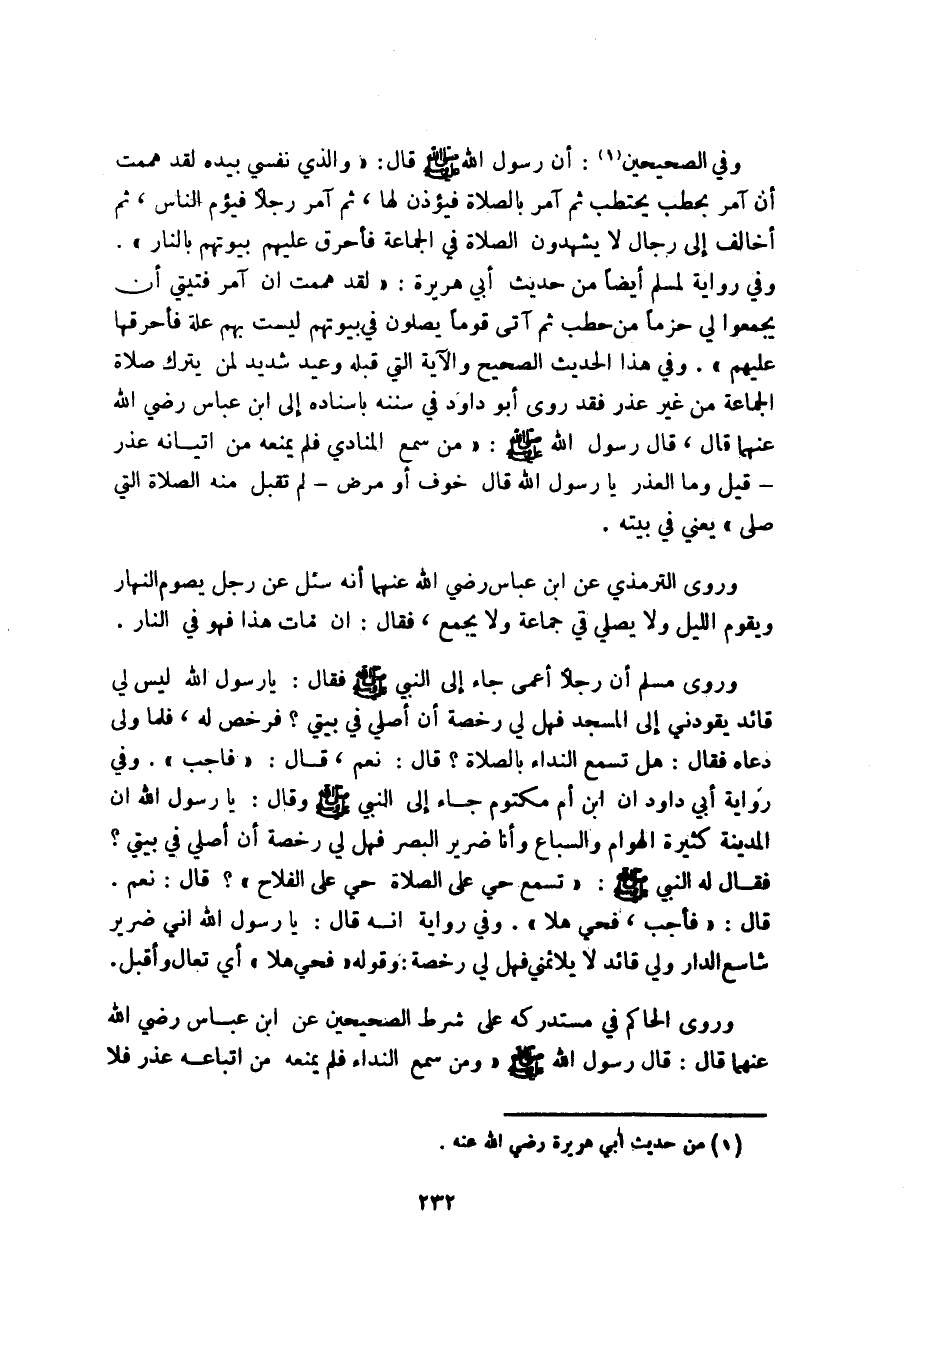 وفي الصحيحين(١) : أن رسول الله ﷺ قال: « والذي نفسي بيده لقد هممت
أن آمر بحطب يحتطب ثم آمر بالصلاة فيؤذن لها ، ثم آمر رجلاً فيؤم الناس ، ثم
أخالف إلى رجال لا يشهدون الصلاة في الجماعة فأحرق عليهم بيوتهم بالنار » .
وفي رواية لمسلم أيضاً من حديث أبي هريرة : « لقد هممت ان آمر فتيتي أن
يجمعوا لي حزماً من حطب ثم آتى قوماً يصلون في بيوتهم ليست بهم علة فأحرقها
عليهم » . وفي هذا الحديث الصحيح والآية التي قبله وعيد شديد لمن يترك صلاة
الجماعة من غير عذر فقد روى أبو داود في سننه باسناده إلى ابن عباس رضي الله
عنهما قال ، قال رسول الله ﷺ : « من سمع المنادي فلم يمنعه من اتيانه عذر
– قيل وما العذر يا رسول الله قال خوف أو مرض – لم تقبل منه الصلاة التي
صلى » يعني في بيته .
وروى الترمذي عن ابن عباس رضي الله عنهما أنه سئل عن رجل يصوم النهار
ويقوم الليل ولا يصلي في جماعة ولا يجمع ، فقال : ان مات هذا فهو في النار .
وروى مسلم أن رجلاً أعمى جاء إلى النبي ﷺ فقال : يا رسول الله ليس لي
قائد يقودني إلى المسجد فهل لي رخصة أن أصلي في بيتي ؟ فرخص له ، فلما ولى
دعاه فقال : هل تسمع النداء بالصلاة ؟ قال : نعم ، قال : « فاجب » . وفي
رواية أبي داود ان ابن أم مكتوم جاء إلى النبي ﷺ وقال : يا رسول الله ان
المدينة كثيرة الهوام والسباع وأنا ضرير البصر فهل لي رخصة أن أصلي في بيتي ؟
فقال له النبي ﷺ : « تسمع حي على الصلاة حي على الفلاح » ؟ قال : نعم .
قال : « فأجب ، فحي هلا » . وفي رواية انه قال : يا رسول الله اني ضرير
شاسع الدار ولي قائد لا يلائمني فهل لي رخصة : وقوله « فحي هلا » أي تعال وأقبل.
وروى الحاكم في مستدركه على شرط الصحيحين عن ابن عباس رضي الله
عنهما قال : قال رسول الله ﷺ « ومن سمع النداء فلم يمنعه من اتباعه عذر فلا
(١) من حديث أبي هريرة رضي الله عنه .
٢٣٢